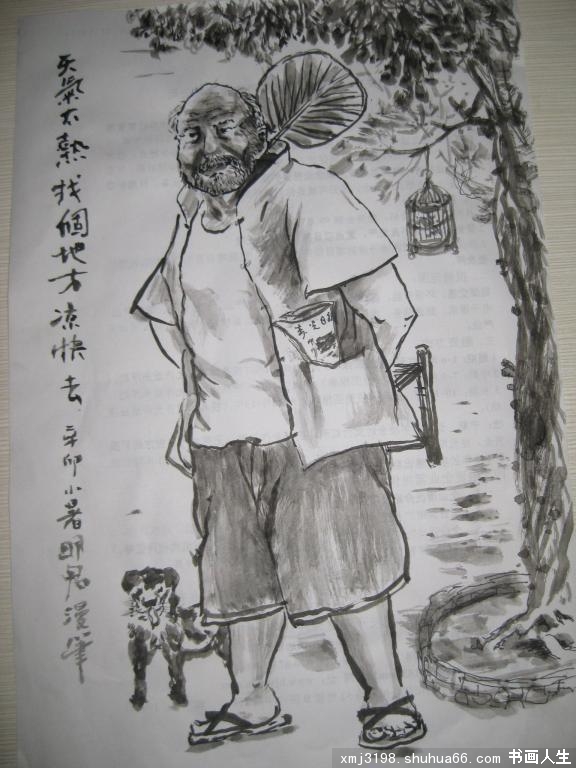 天氣太熱 找個地方凉快去 辛卯小暑明漫筆
xmj3198.shuhua66.com 书画人生